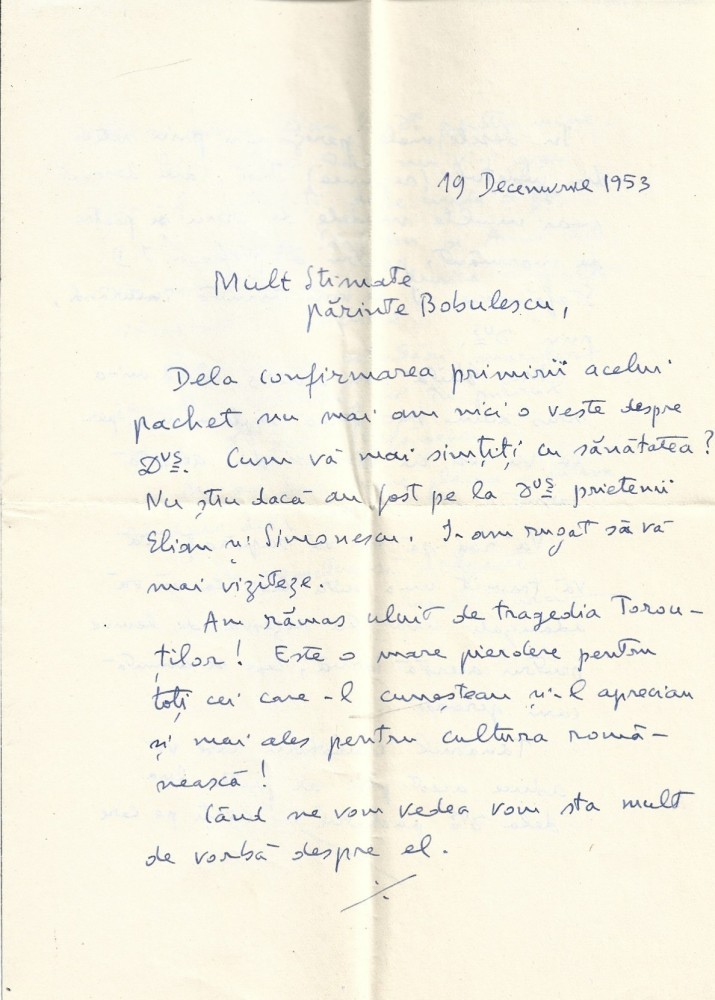 19 Decemvrie 1953
Mult Stimate
părinte Bobulescu,
Dela confirmarea primirii acelui
pachet nu mai am nici o veste despre
Dvs. Cum vă mai simțiți cu sănătatea?
Nu știu dacă au fost pe la Dvs prietenii
Elian și Simonescu. I-am rugat să vă
mai viziteze.
Am rămas uluit de tragedia Torou-
ților! Este o mare pierdere pentru
toți cei care-l cunoșteau și-l apreciau
și mai ales pentru cultura româ-
nească!
Când ne vom vedea vom sta mult
de vorbă despre el.
./.